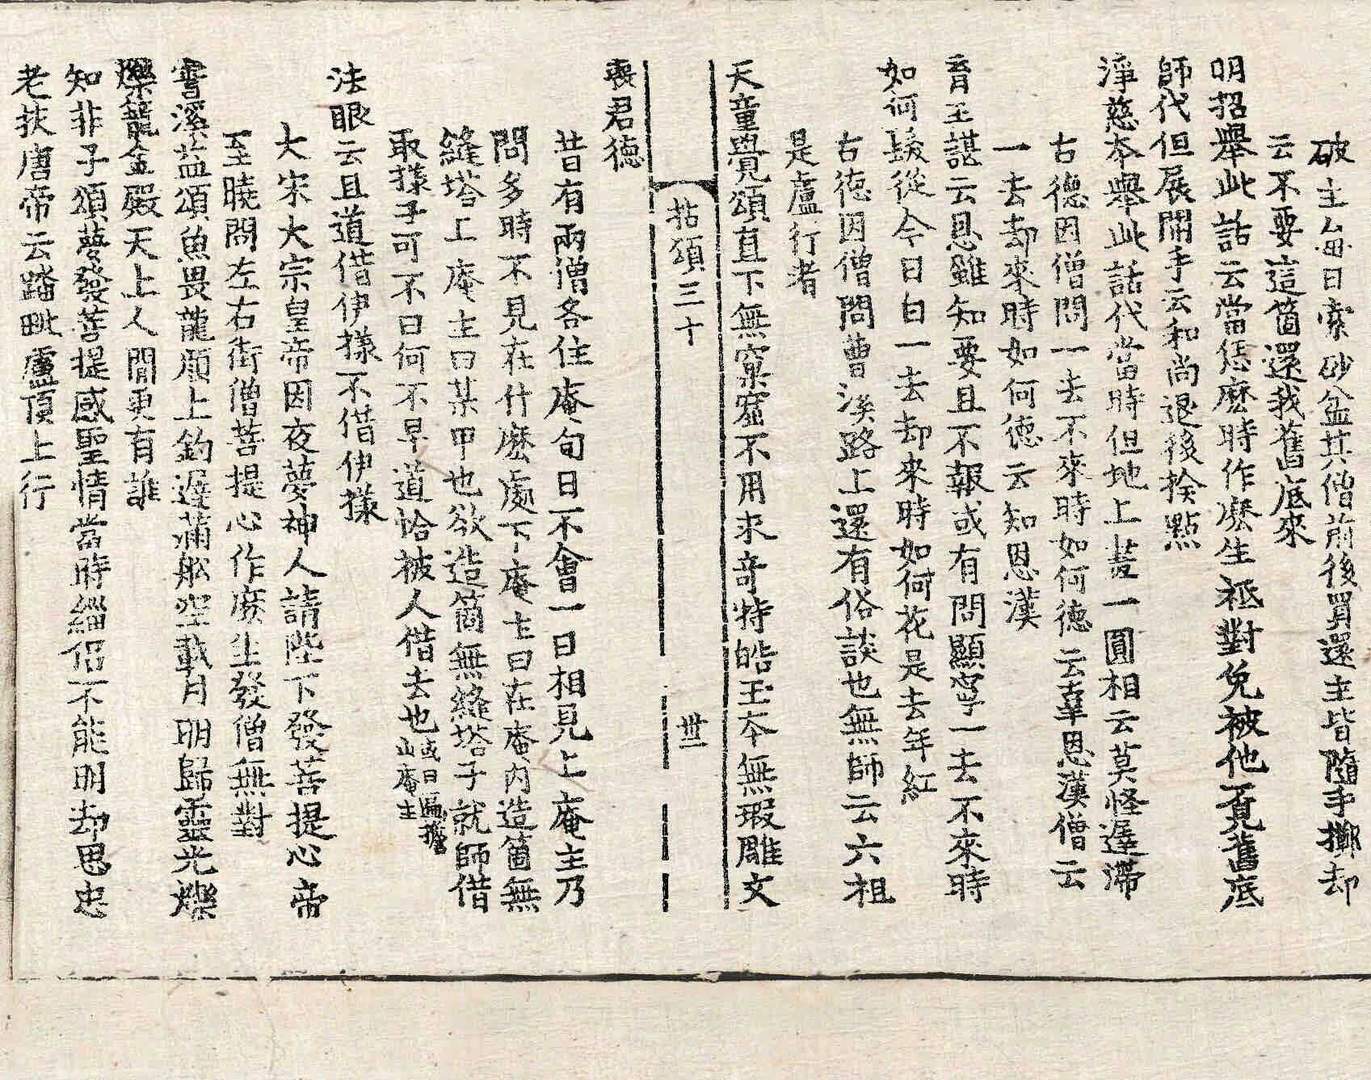 破主每日索砂盆其僧前後買還主皆隨手擲却
云不要這箇還我舊底來
明招舉此話云當恁麽時作麽生祗對免被他覓舊底
師代但展開手云和尚退後捘點
淨慈本舉此話代當時但地上畫一圓相云莫怪遲滯
古德因僧問一去不來時如何德云辜恩漢僧云
一去却來時如何德云知恩漢
育王諶云恩雖知要且不報或有問顯寧一去不來時
如何髮從今日白一去却來時如何花是去年紅
古德因僧問曹溪路上還有俗談也無師云六祖
是盧行者
天童覺頌直下無窠窟不用求奇特皓玉本無瑕雕文
拈頌三十 卅一
喪君德
昔有兩僧各住庵旬日不會一日相見上庵主乃
問多時不見在什麽處下庵主曰在庵內造箇無
縫塔上庵主曰某甲也欲造箇無縫塔子就師借
取㨾子可不曰何不早道恰被人借去也或曰匾擔山庵主
法眼云且道借伊㨾不借伊㨾
大宋大宗皇帝因夜夢神人請陛下發菩提心帝
至曉問左右街僧菩提心作麽生發僧無對
霅溪益頌魚畏龍顔上釣遲滿舩空載月明歸靈光爍
爍籠金殿天上人閒更有誰
知非子頌夢發菩提感聖情當時緇侣不能明却思忠
老扶唐帝云踏毗盧頂上行